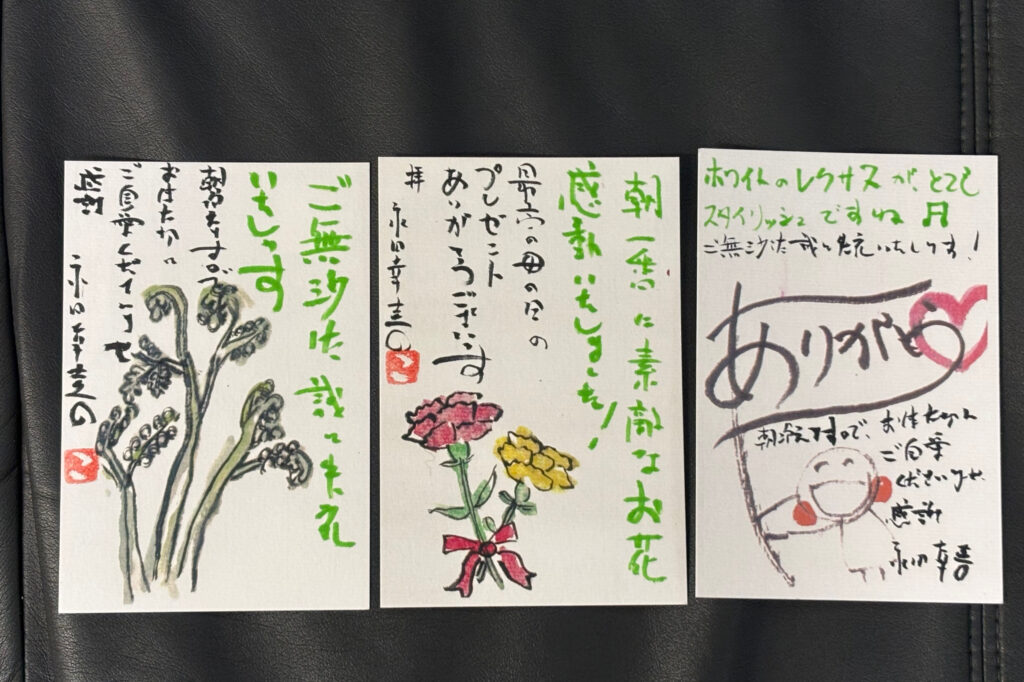 ご無沙汰誠に失礼
いたしてます
朝冷えますので
お身体大切に
ご自愛くださいませ
感謝
朝一番に素敵なお花
感動いたしました!
最高の母の日の
プレゼント
ありがとうございます
拝
ホワイトのレクサスが、とても
スタイリッシュですね
ご無沙汰誠に失礼いたしてます!
ありがとう
朝冷えますので、
お体大切に
ご自愛
くださいませ
感謝